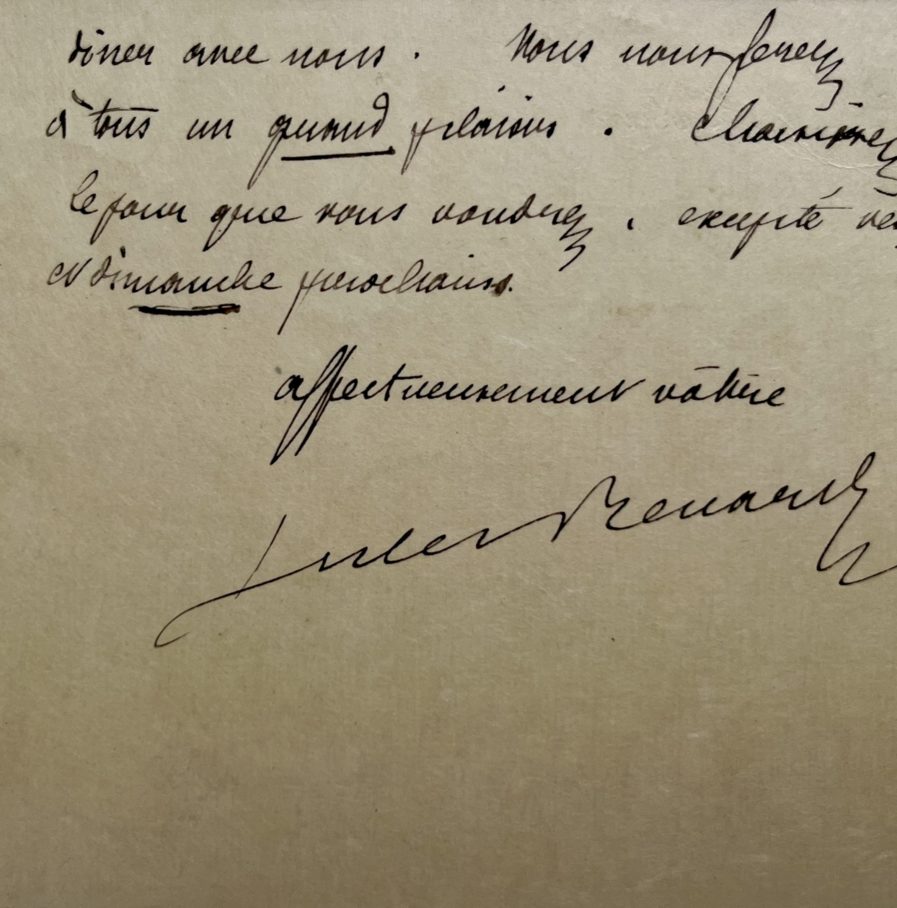 dîner avec nous. Vous nous ferez
à tous un grand plaisir. Choisissez
le jour que vous voudrez, excepté
et dimanche prochains.
affectueusement vôtre
Jules Renard